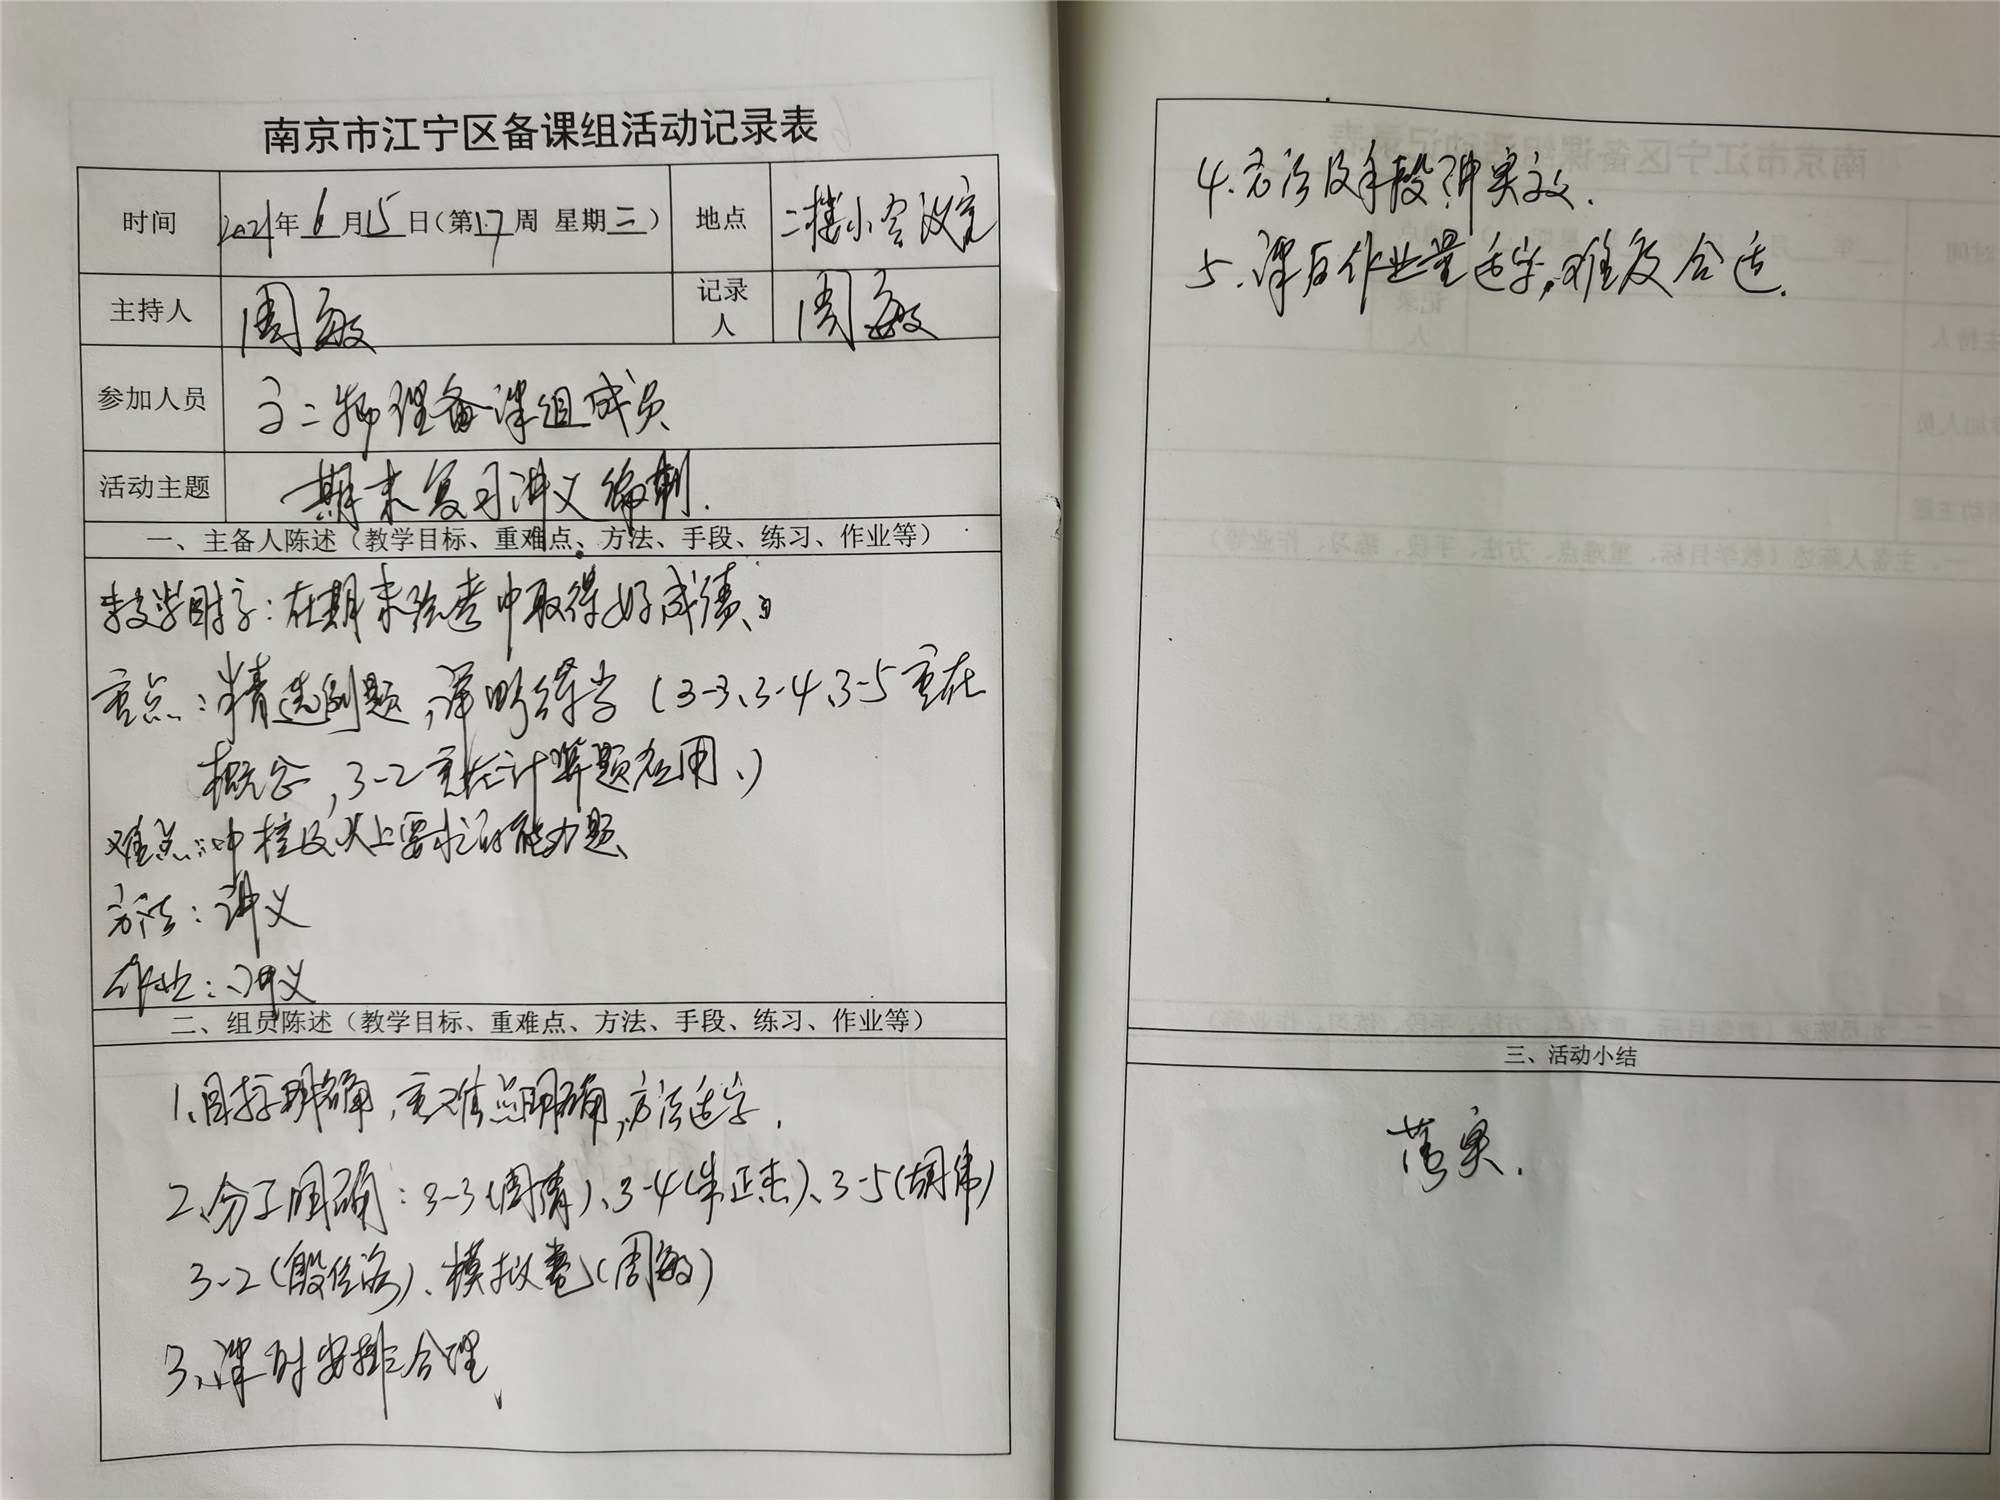 南京市江宁区备课组活动记录表
时间 2021年6月15日(第17周 星期二) 地点 二楼小会议室
主持人 周敏 记录人 周敏
参加人员 高二物理备课组成员
活动主题 期末复习讲义编制.
一、主备人陈述（教学目标、重难点、方法、手段、练习、作业等）
教学目标:在期末统考中取得好成绩、
重点:精选例题,详略得当(3-3、3-4、3-5重在
概念,3-2重在计算题应用、)
难点:中档及以上要求的能力题、
方法:讲义
作业:讲义
二、组员陈述（教学目标、重难点、方法、手段、练习、作业等）
1、目标明确,重难点明确,方法适当.
2、分工明确:3-3(周清)、3-4(朱正杰)、3-5(胡伟)
3-2(殷)、模拟卷(周敏)
3、课时安排合理、
4.方法及手段讲实效.
5.课后作业量适当,难度合适.
三、活动小结
落实.